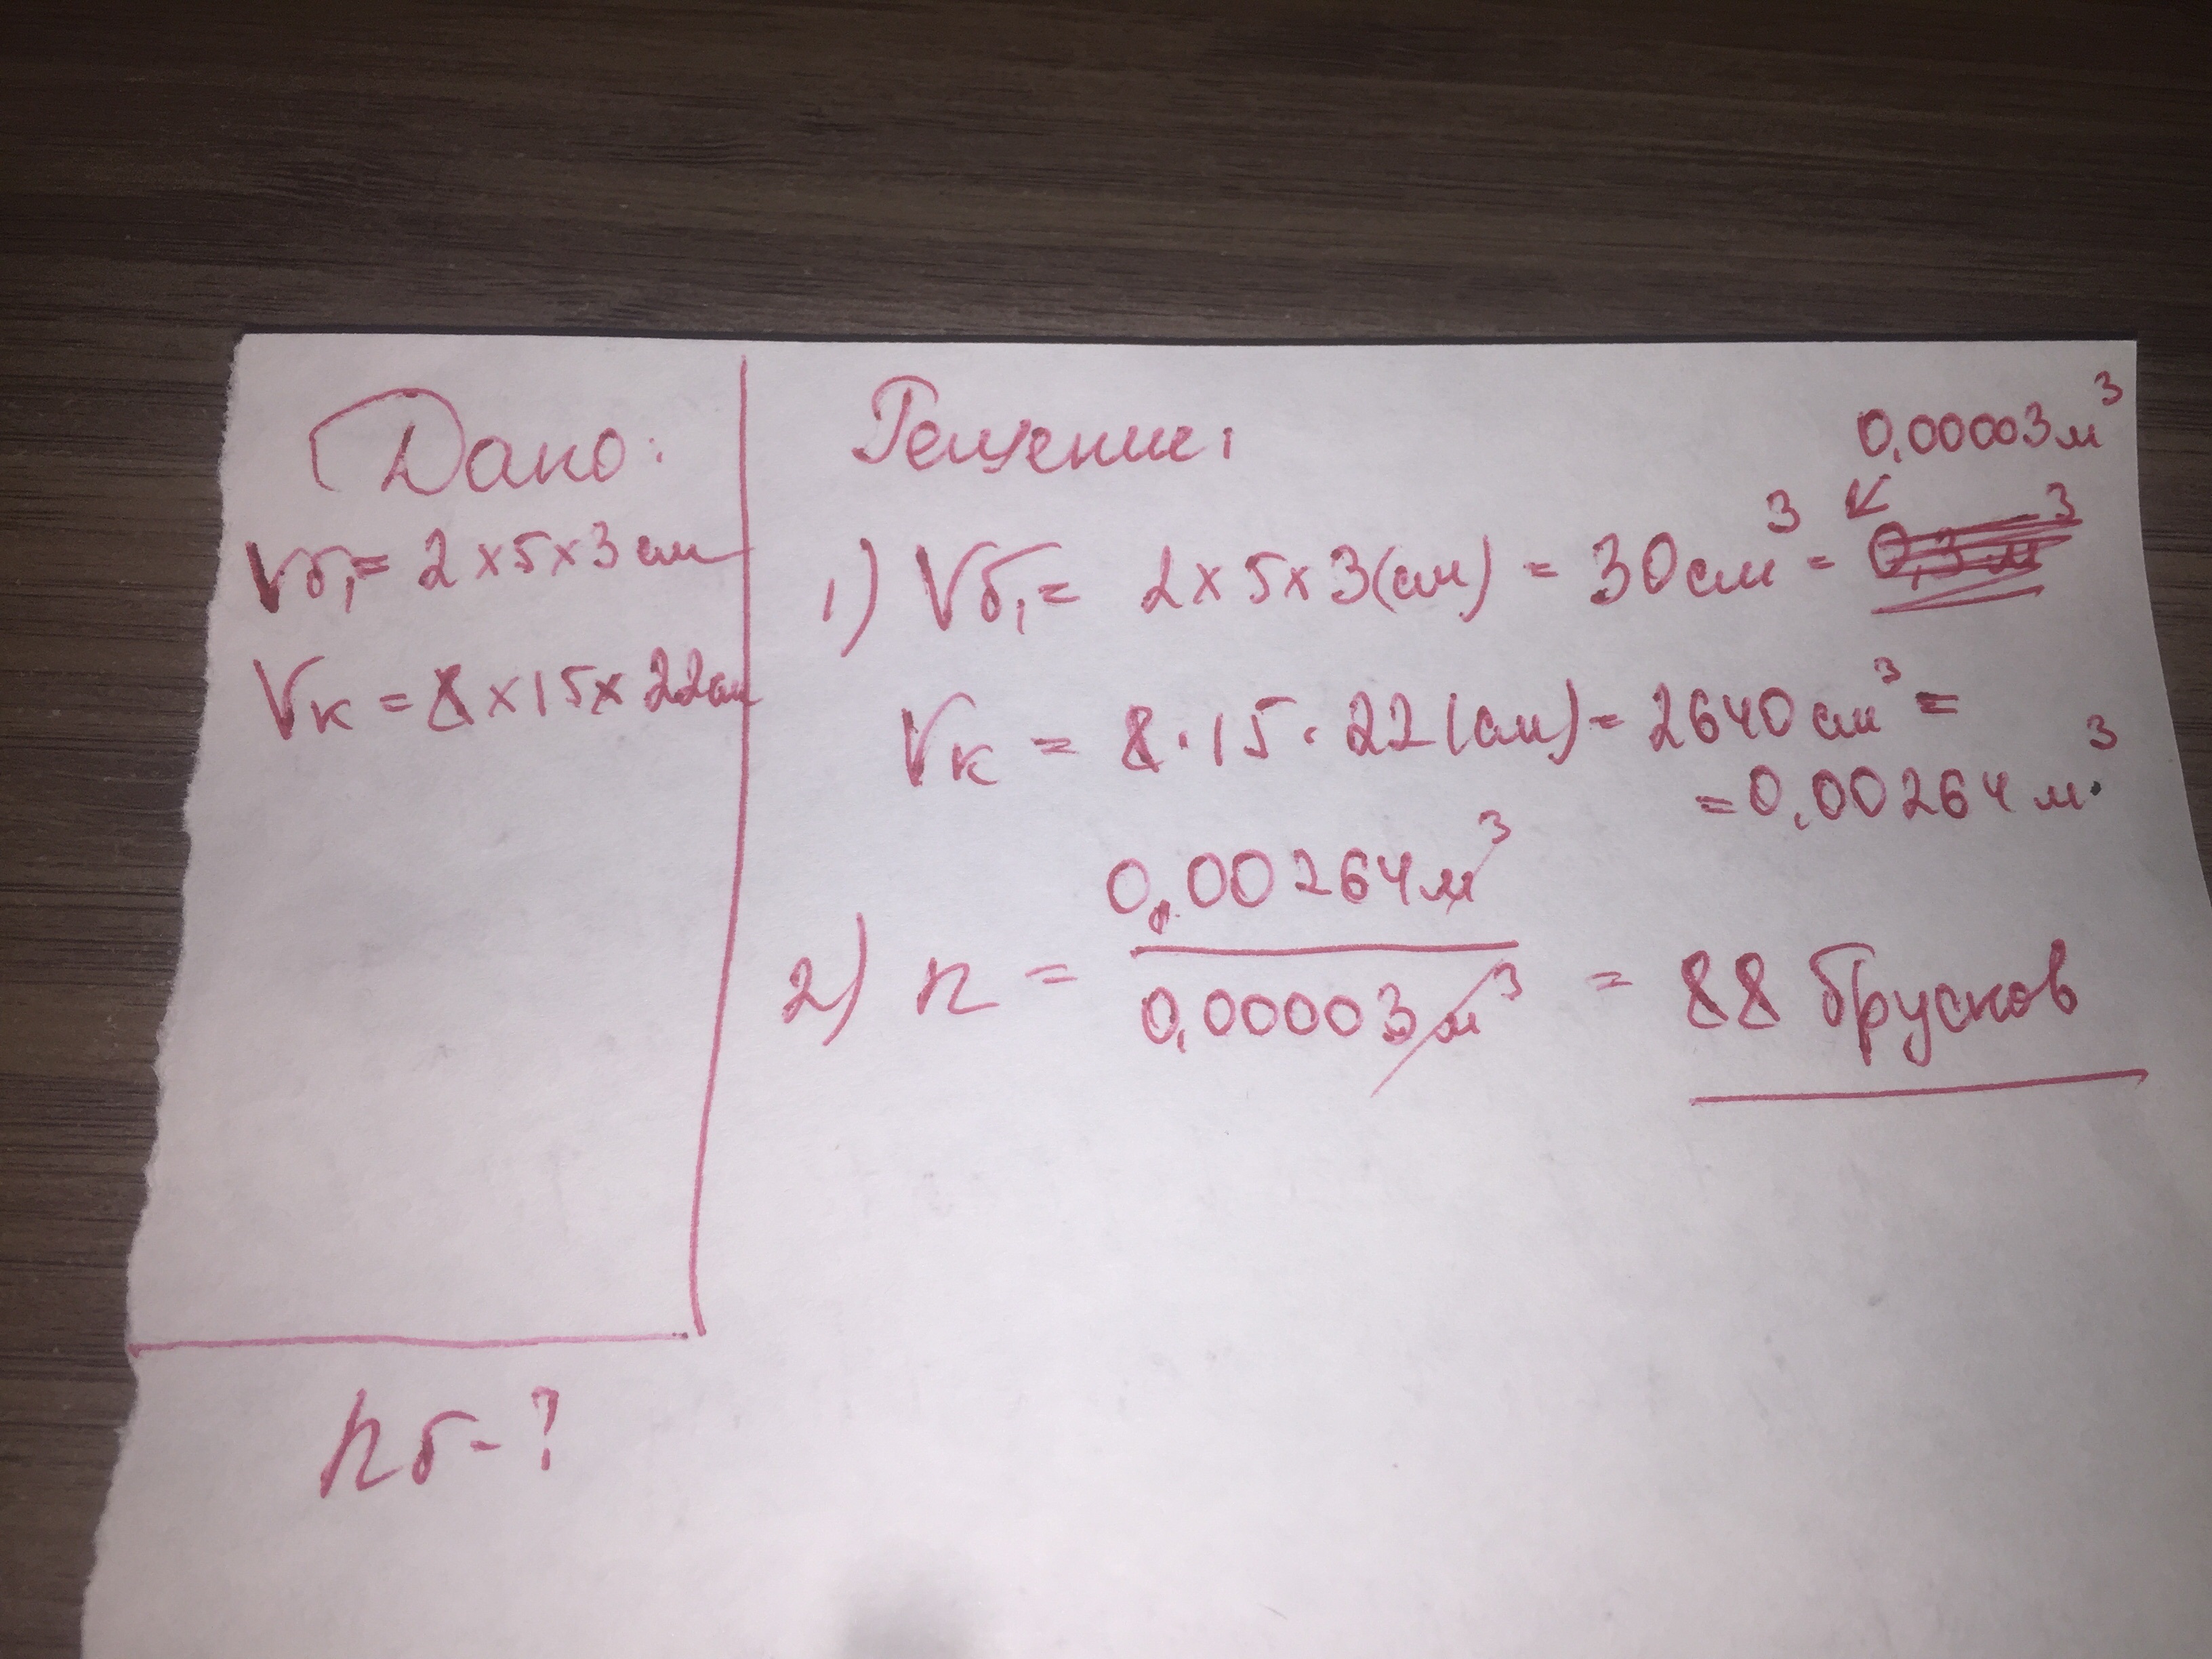 Дано:
Vб₁= 2×5×3см
Vк = 8×15×22см
nб-?
Решение:
0,00003м³
1) Vб₁= 2×5×3(см) = 30см³ = 0,3 м³
Vк = 8·15·22(см)= 2640см³ =
=0,00264м³
2) n = 0,00264м³ / 0,00003м³ = 88 брусков